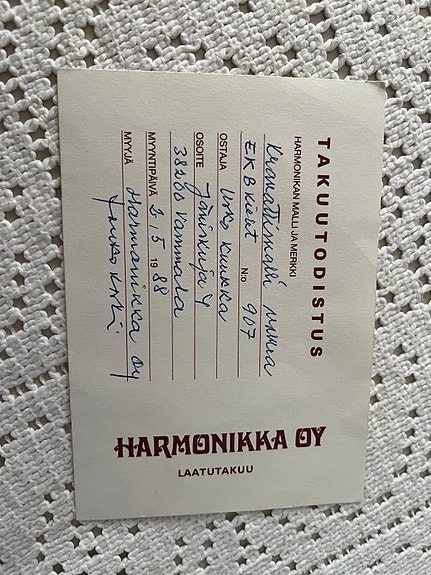 TAKUUTODISTUS
HARMONIKAN MALLI JA MERKKI
EKB Kielet N:o 907
OSTAJA Urho Kuukka
OSOITE Jäniskuja 4
38200 Vammala
MYYNTIPÄIVÄ 2/5 1988
MYYJÄ Harmonikka Oy
HARMONIKKA OY
LAATUTAKUU